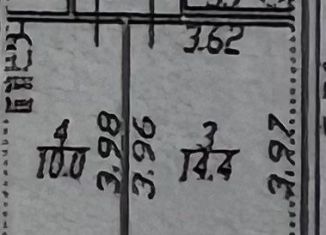 3.62
4
10.0
3.98
3.96
3
14.4
3.97